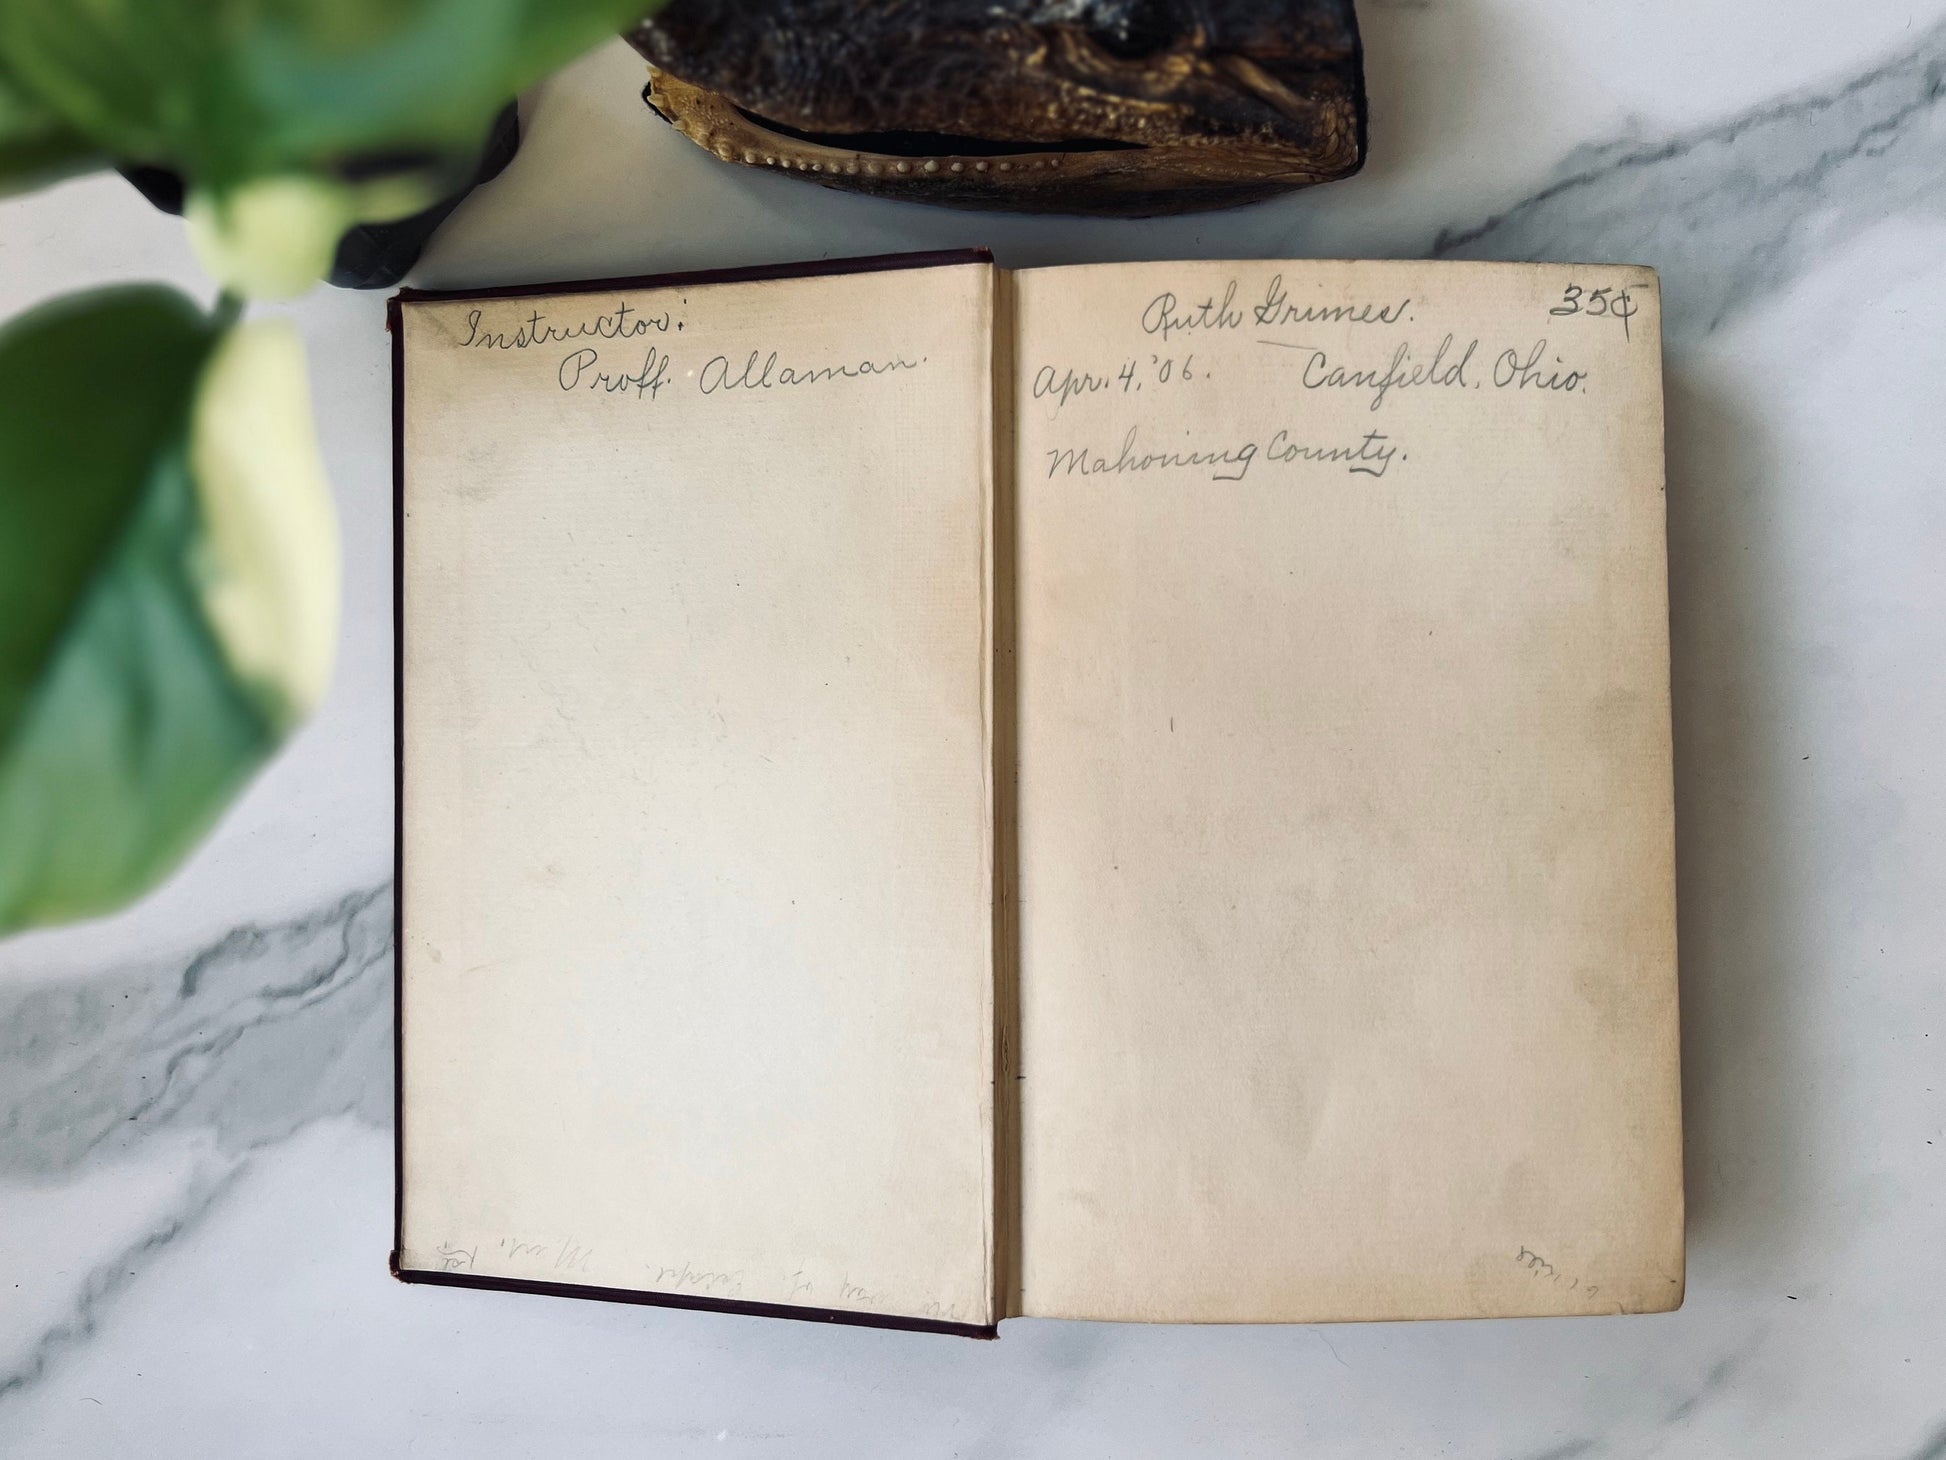 Instructor:
Proff. Allaman.
Ruth Grimes.
35¢
Apr. 4, '06.
Canfield, Ohio.
Mahoning County.